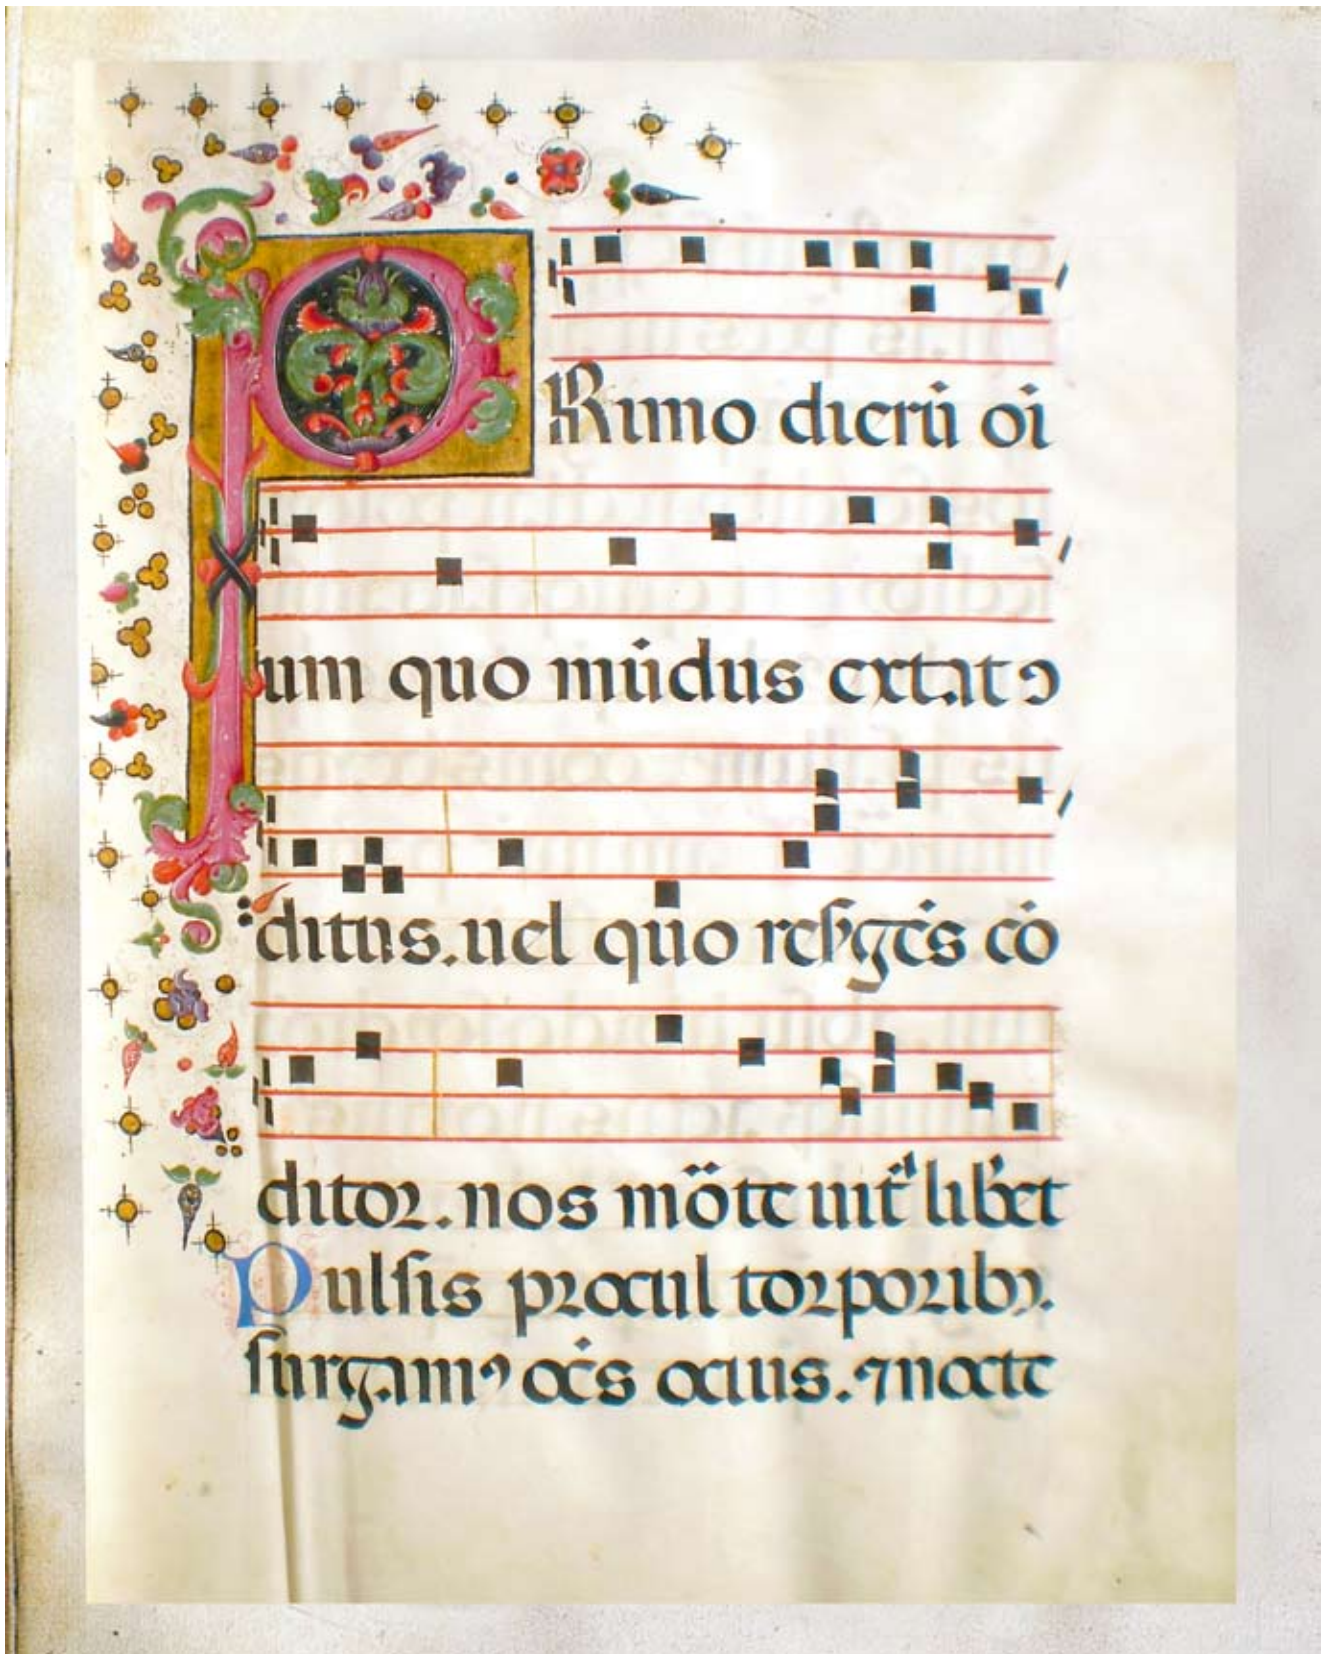 PRimo dierū oī
um quo mūdus extat ↄ
ditus. uel quo resurgēs cō
ditor. nos mō̈te uīt libet
Pulsis procul torporibꝫ.
surgamꝰ oēs ocius. ⁊ nocte